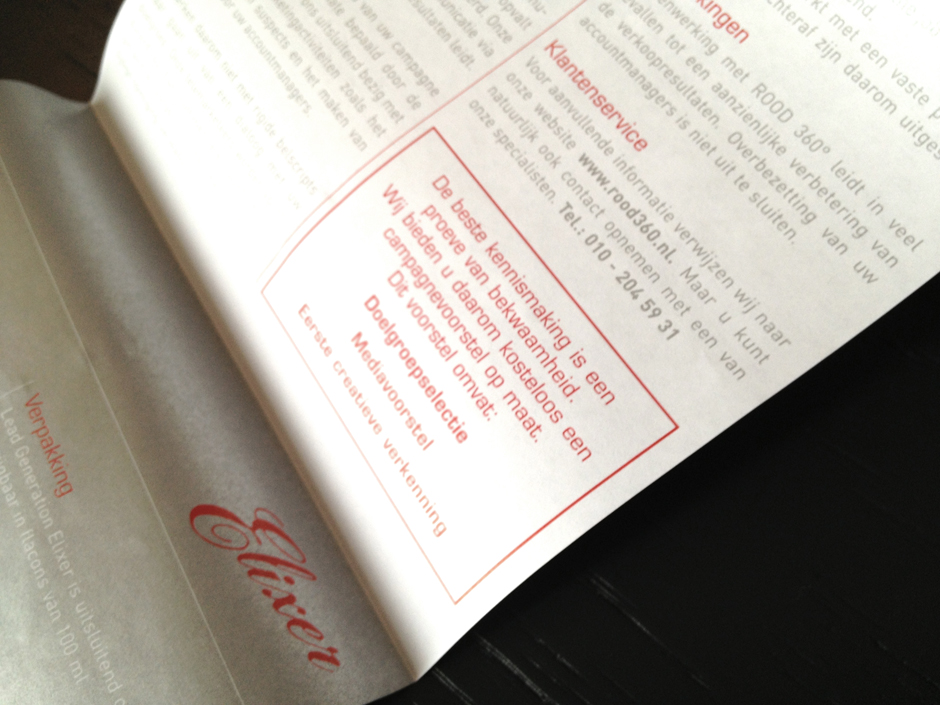 van uw campagne
sultaten leidt.
municatie via
erd. Onze
opvalt
bepaald door de
uitsluitend bezig met
zoals het
suspects en het maken van
accountmanagers.
kingen
kt met een vaste
zijn daarom uitges
enwerking met ROOD 360° leidt in veel
vallen tot een aanzienlijke verbetering van
de verkoopresultaten. Overbezetting van uw
accountmanagers is niet uit te sluiten.
Klantenservice
Voor aanvullende informatie verwijzen wij naar
onze website www.rood360.nl. Maar u kunt
natuurlijk ook contact opnemen met een van
onze specialisten. Tel.: 010 - 204 59 31
De beste kennismaking is een
proeve van bekwaamheid.
Wij bieden u daarom kosteloos een
campagnevoorstel op maat.
Dit voorstel omvat:
Doelgroepselectie
Mediavoorstel
Eerste creatieve verkenning
Elixer
Verpakking
Lead Generation Elixer is uitsluitend
gbaar in flacons van 100 ml